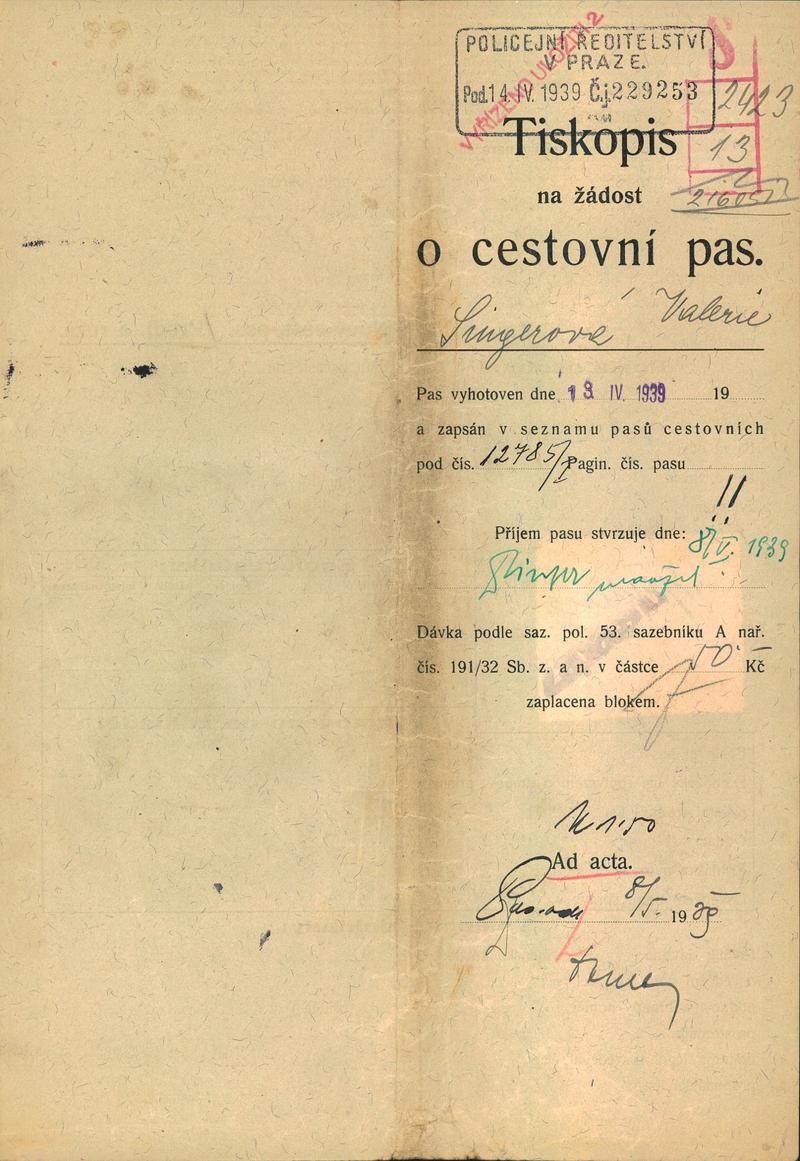 POLICEJNÍ ŘEDITELSTVÍ
V PRAZE.
Pod. 14. IV. 1939 Č.j. 229253
2423
13
Tiskopis
na žádost
21605
o cestovní pas.
Singerová Valerie
Pas vyhotoven dne 13 IV. 1939 19
a zapsán v seznamu pasů cestovních
pod čís. 12785/I Pagin. čís. pasu
II
Příjem pasu stvrzuje dne: 8/V. 1939
Dávka podle saz. pol. 53. sazebníku A nař.
čís. 191/32 Sb. z. a n. v částce 50 Kč
zaplacena blokem.
Ad acta.
8/5 1939